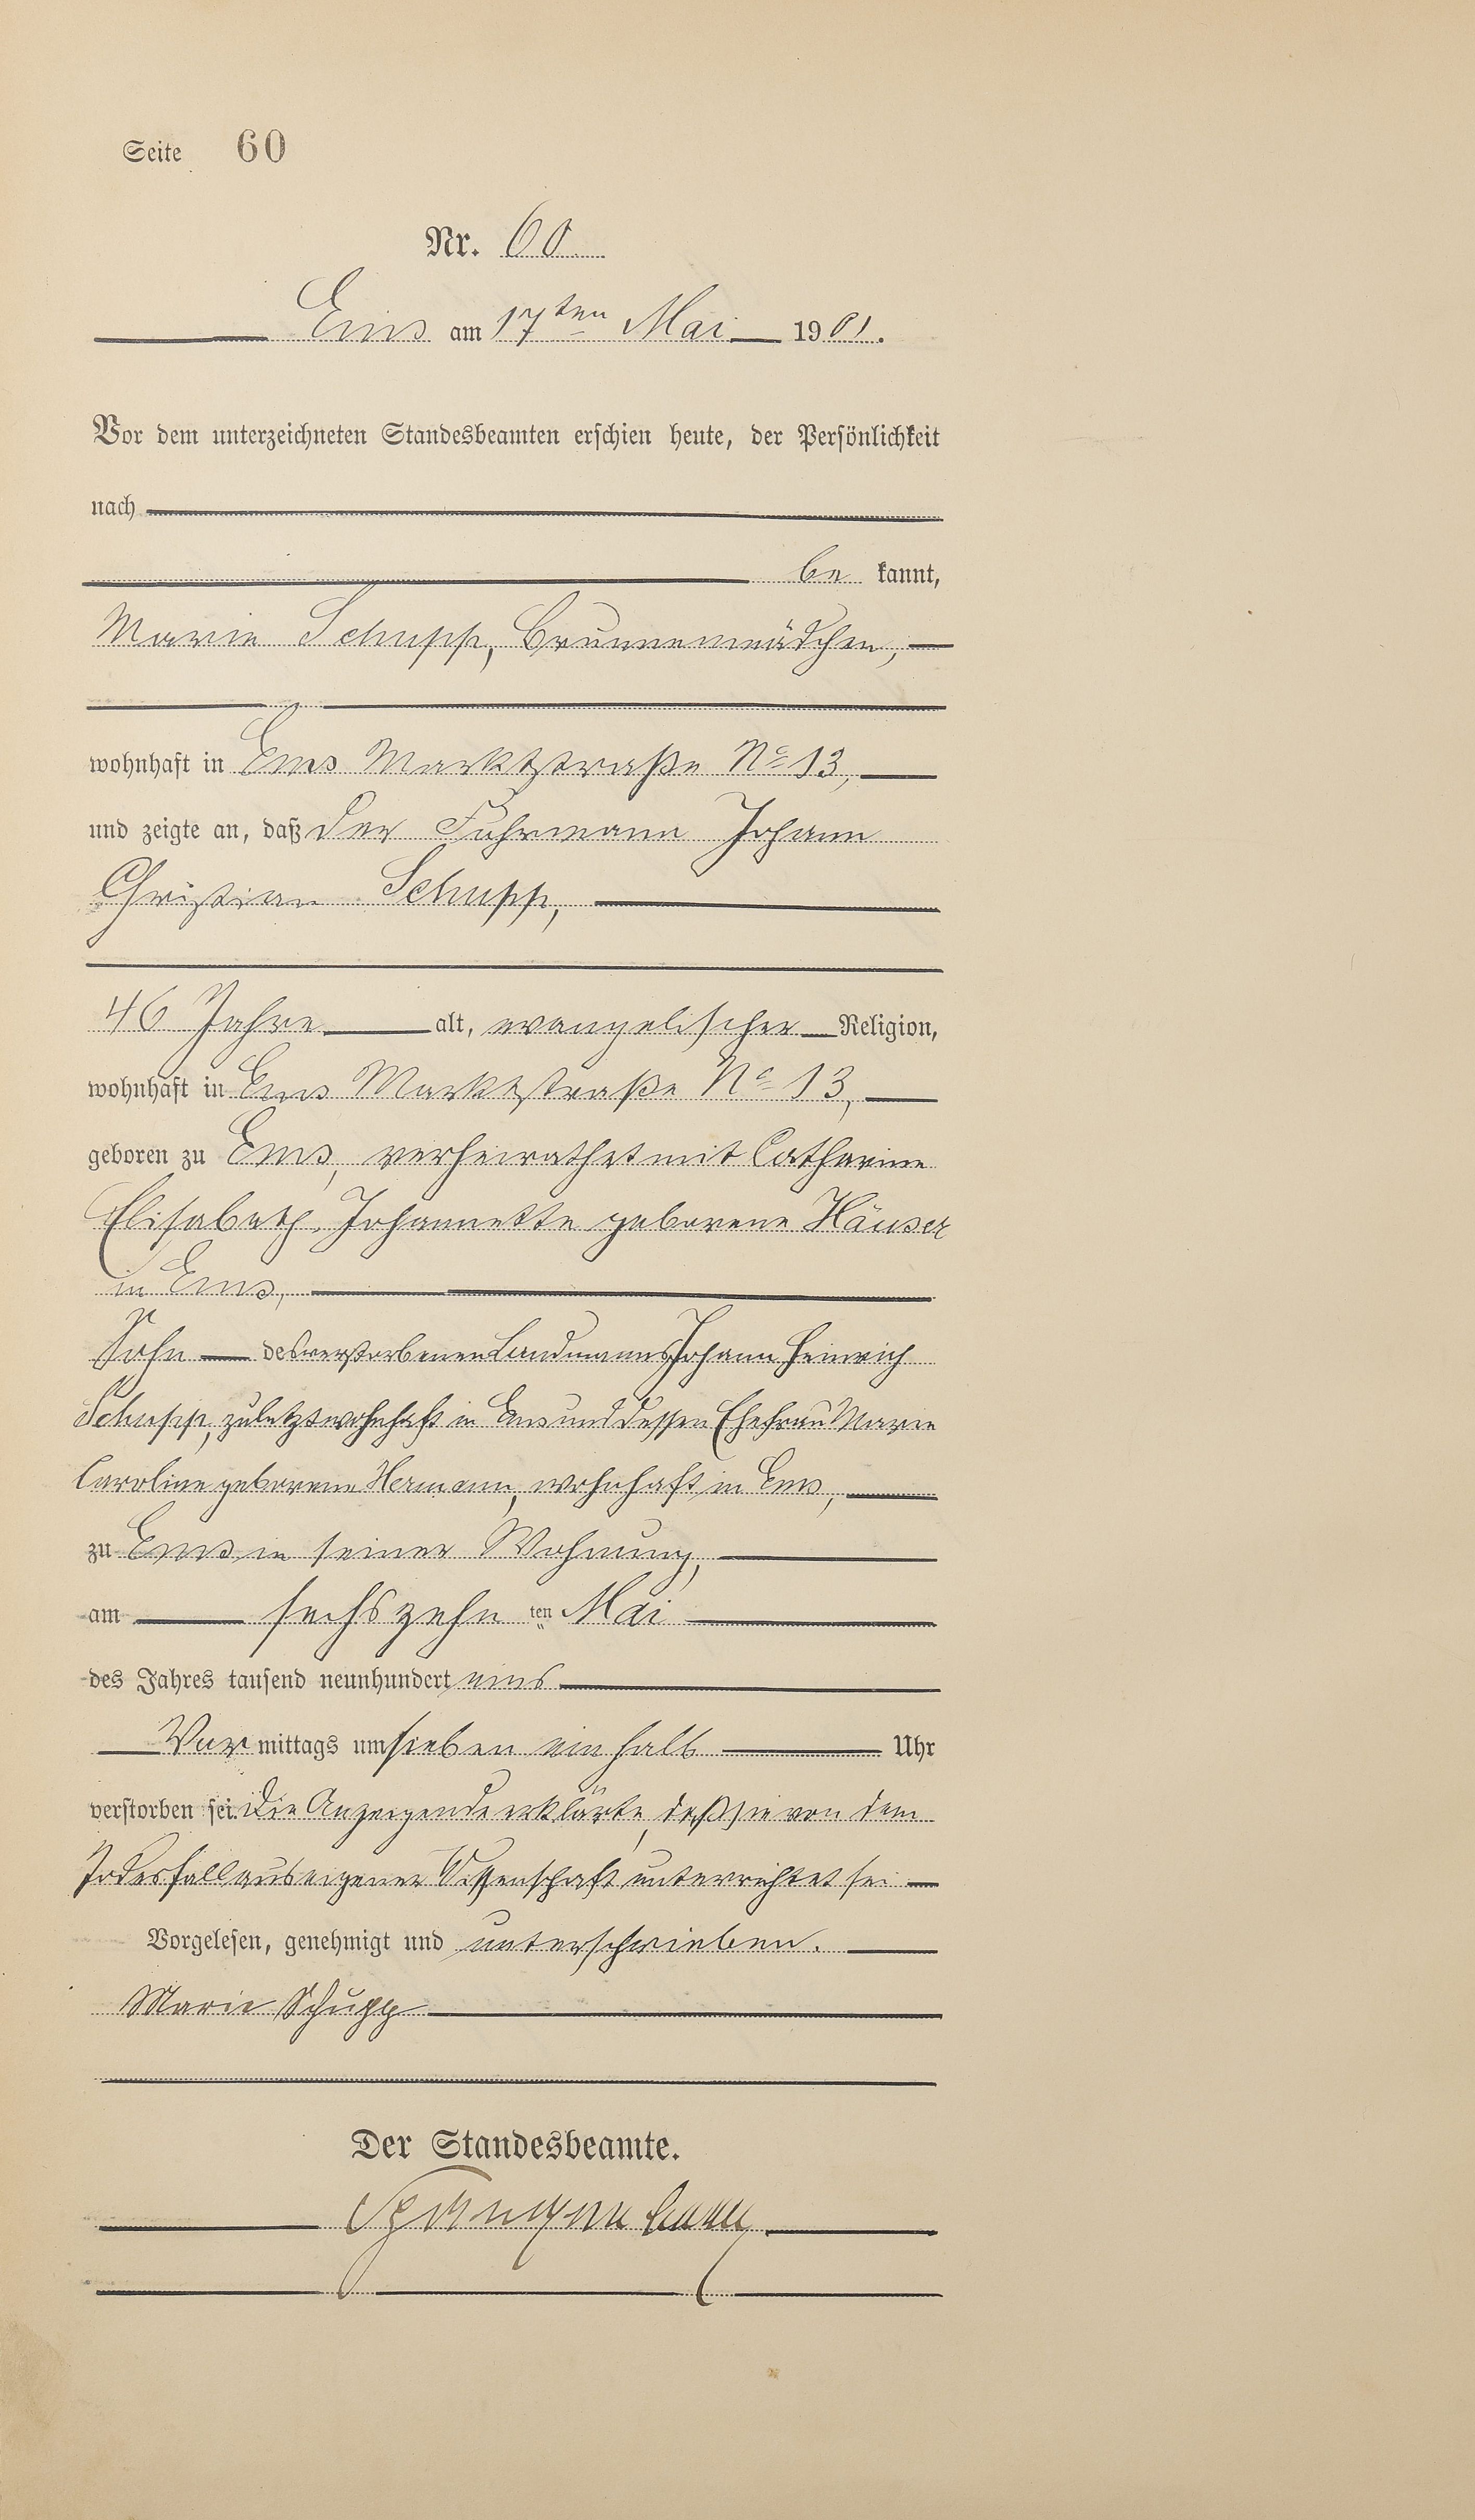 Seite 60
Nr. 60
Ems am 17ten Mai 1901.
Vor dem unterzeichneten Standesbeamten erschien heute, der Persönlichkeit
nach
be kannt,
Marie Schupp, Brunnenmädchen,
wohnhaft in Ems Marktstraße No 13,
und zeigte an, daß der Fuhrmann Johann
Christian Schupp,
46 Jahre alt, evangelischer Religion,
wohnhaft in Ems Marktstraße No 13,
geboren zu Ems, verheirathet mit Catharine
Elisabeth Johannette geborene Häuser
in Ems,
Sohn des verstorbenen Landmanns Johann Heinrich
Schupp, zuletzt wohnhaft in Ems und dessen Ehefrau Marie
Caroline geborene Hermann, wohnhaft in Ems,
zu Ems in seiner Wohnung,
am sechszehn ten Mai
des Jahres tausend neunhundert eins
Vor mittags um sieben ein halb Uhr
verstorben sei. Die Anzeigende erklärte, daß sie von dem
Todesfall aus eigener Wissenschaft unterrichtet sei
Vorgelesen, genehmigt und unterschrieben.
Marie Schupp
Der Standesbeamte.